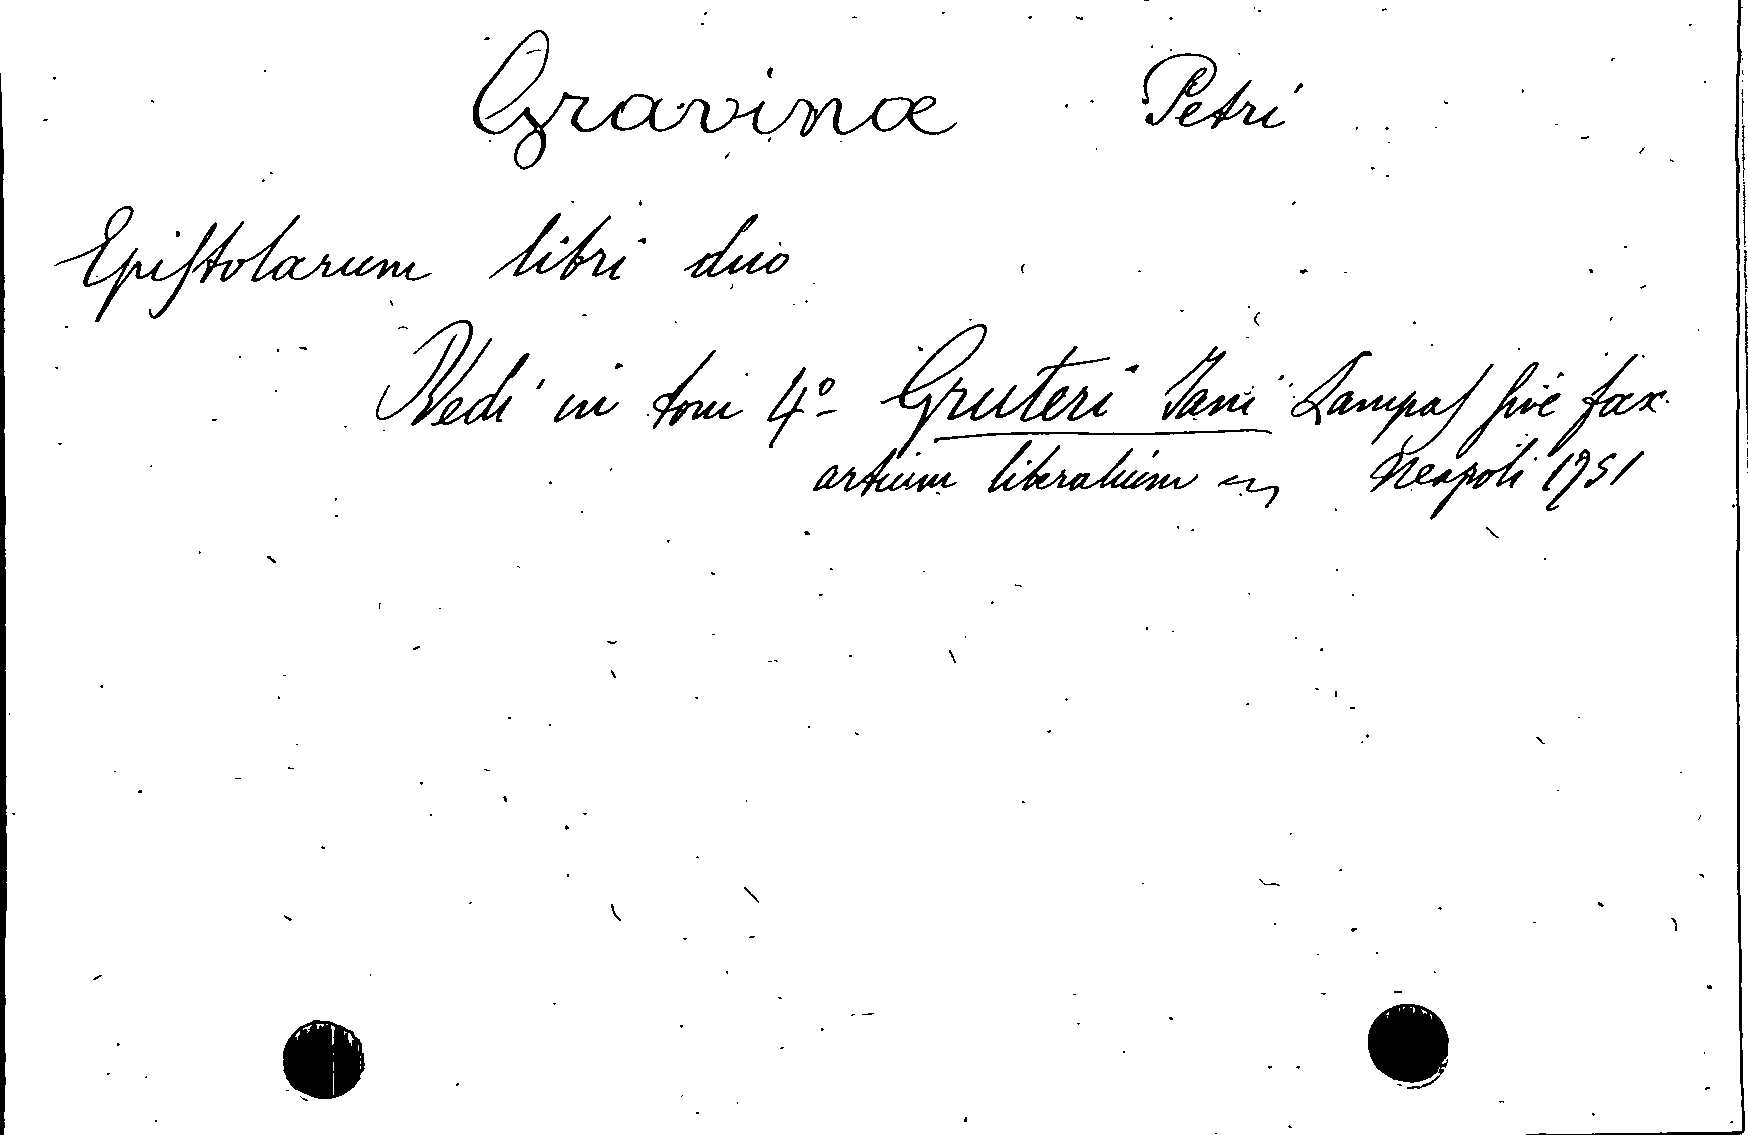 Gravinæ Petri
Epiſtolarum libri duo
Vedi in tom 4º Gruteri Jani Lampaſ ſive fax
artium liberalium Neapoli 1751